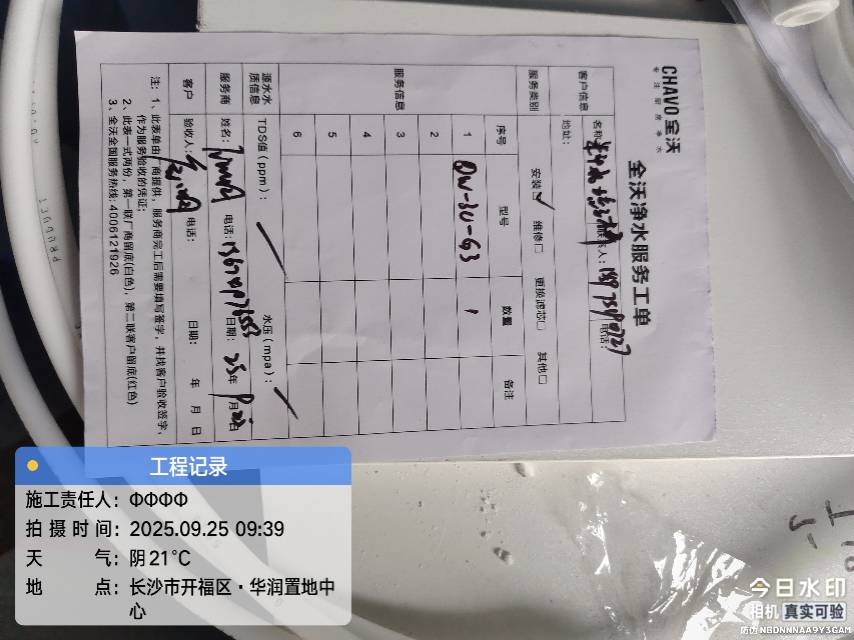 CHAVO全沃
专注厨房净水
全沃净水服务工单
客户信息
名称:
人:
电话:
地址:
服务类别
安装☑ 维修☐ 更换滤芯☐ 其他☐
服务信息
序号 型号 数量 备注
1 QW-3U-G3 1
2
3
4
5
6
源水水质信息
TDS值(ppm): 水压(mpa):
服务商
姓名: 电话: 日期: 25年 月 日
客户
验收人: 电话: 日期: 年 月 日
注:1、此表单由厂商提供,服务商完工后需要填写签字,并找客户验收签字,
作为服务验收的凭证;
2、此表一式两份,第一联厂商留底(白色),第二联客户留底(红色)
3、全沃全国服务热线:4006121926
PRODUCT
工程记录
施工责任人:ΦΦΦΦ
拍摄时间:2025.09.25 09:39
天气:阴21℃
地点:长沙市开福区·华润置地中
心
今日水印
相机 真实可验
防伪 NBDNNNAA9Y3GAM